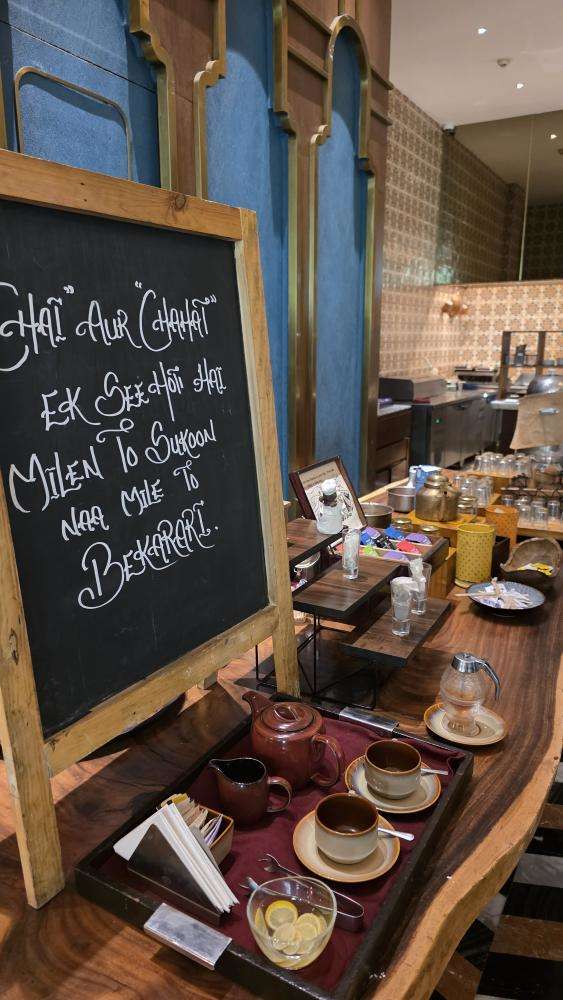 "CHAI" AUR "CHAHAT"
EK SEE HOTI HAI
MILEN TO SUKOON
NAA MILE TO
BEKARARI..